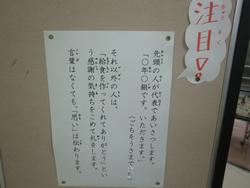 注目
先頭の人が代表であいさつします。
「○年○組です。いただきます。」
（ごちそうさまで
それ以外の人は、
「給食を作ってくれてありがとう」とい
う感謝の気持ちをこめて礼をします。
言葉はなくても、「思い」は伝わります。